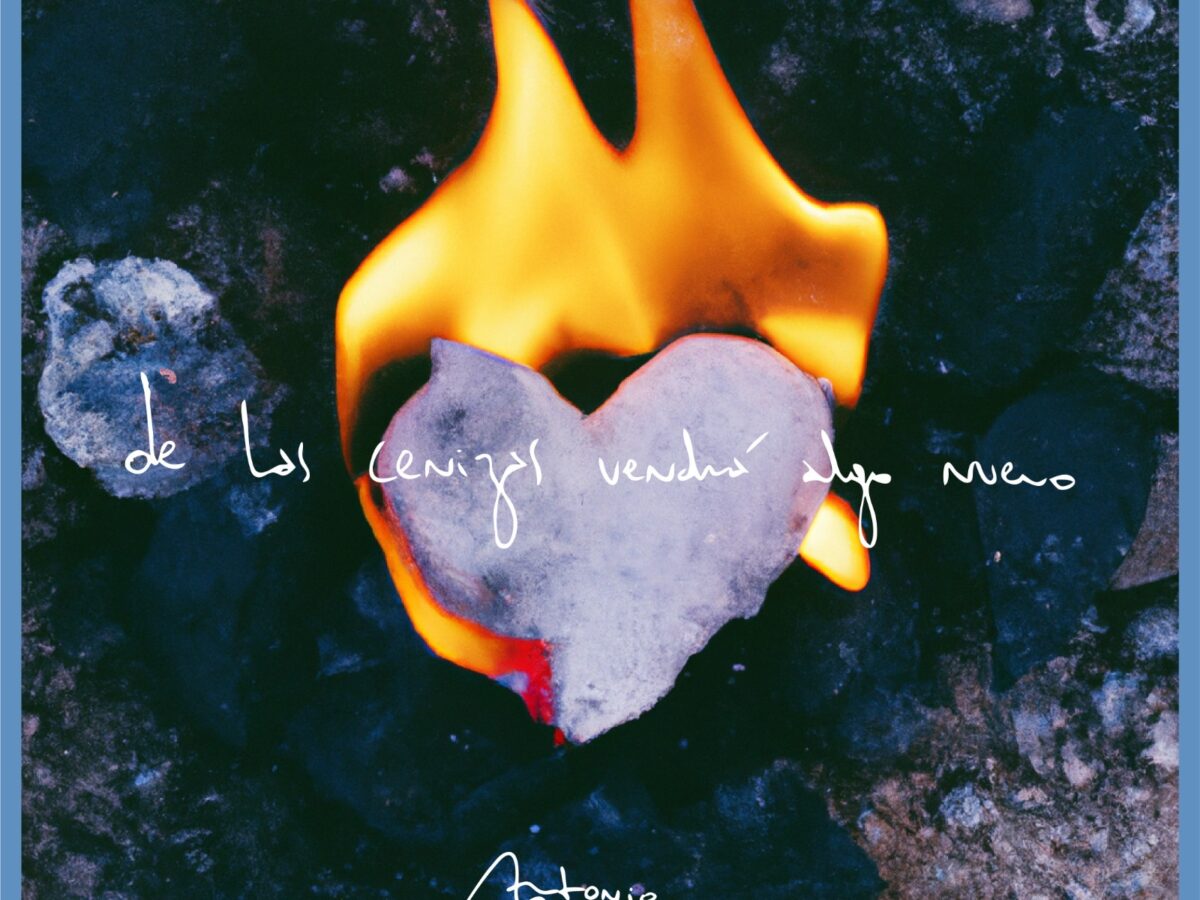 de las cenizas vendrá algo nuevo
Antonio